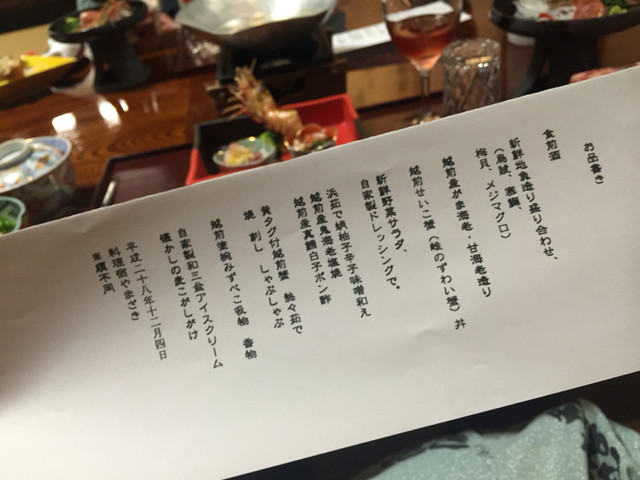 お品書き
食前酒
新鮮地魚造り盛り合わせ、
(烏賊、寒鰤、
梅貝、メジマグロ)
越前産がま海老・甘海老造り
越前せいこ蟹(雌のずわい蟹)丼
新鮮野菜サラダ、
自家製ドレッシングで。
浜茹で蛸柚子辛子味噌和え
越前産鬼海老塩焼
越前産真鱈白子ポン酢
黄タグ付越前蟹 鮹々茹で
焼 刺し しゃぶしゃぶ
越前塗椀みずべこ吸物 香物
自家製和三盆アイスクリーム
懐かしの麦こがしがけ
平成二十八年十二月四日
料理宿やまざき
順不同